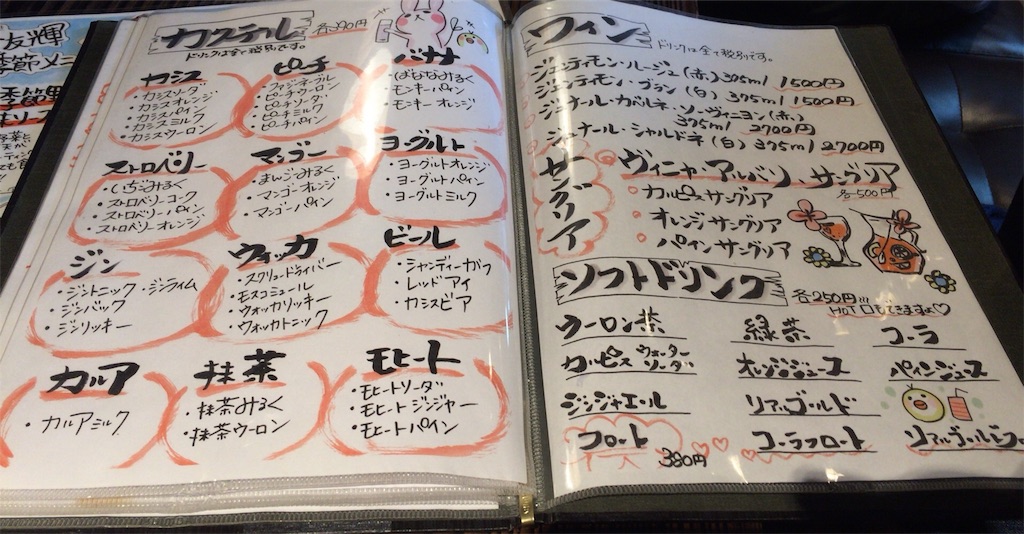 カクテル 各390円
ドリンクは全て税別です。
カシス
・カシスソーダ
・カシスオレンジ
・カシスパイン
・カシスミルク
・カシスウーロン
ピーチ
・ファジーネーブル
・ピーチウーロン
・ピーチソーダ
・ピーチミルク
・ピーチパイン
バナナ
・ばななみるく
・モンキーパイン
・モンキーオレンジ
ストロベリー
・いちごみるく
・ストロベリーコーク
・ストロベリーパイン
・ストロベリーオレンジ
マンゴー
・まんごみるく
・マンゴーオレンジ
・マンゴーパイン
ヨーグルト
・ヨーグルトオレンジ
・ヨーグルトパイン
・ヨーグルトミルク
ジン
・ジントニック・ジンライム
・ジンバック
・ジンリッキー
ウォッカ
・スクリュードライバー
・モスコミュール
・ウォッカリッキー
・ウォッカトニック
ビール
・シャンディーガフ
・レッドアイ
・カシスビア
カルア
・カルアミルク
抹茶
・抹茶みるく
・抹茶ウーロン
モヒート
・モヒートソーダ
・モヒートジンジャー
・モヒートパイン
ワイン
ドリンクは全て税別です。
(赤) 375ml 1500円
(白) 375ml 1500円
・カベルネ・ソーヴィニヨン(赤)
375ml 2700円
・シャルドネ(白) 375ml 2700円
サングリア
ヴィニャ・アルバリ サングリア
各500円
・カルピスサングリア
・オレンジサングリア
・パインサングリア
ソフトドリンク 各250円!!!
HOTもできますよ♡
ウーロン茶 緑茶 コーラ
カルピス ウォーター ソーダー オレンジジュース パインジュース
ジンジャエール リアルゴールド
フロート コーラフロート
390円